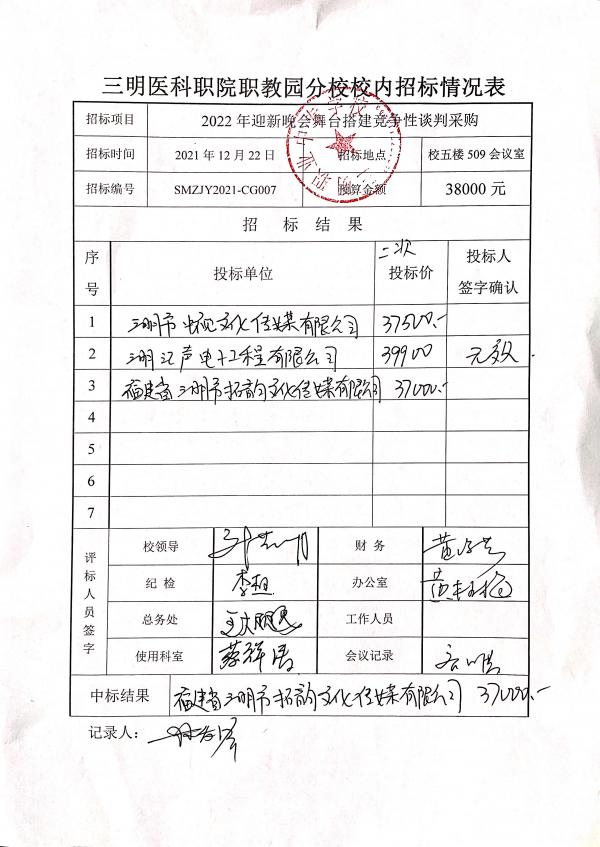 三明医科职院职教园分校校内招标情况表
招标项目 2022年迎新晚会舞台搭建竞争性谈判采购
招标时间 2021年12月22日 招标地点 校五楼509会议室
招标编号 SMZJY2021-CG007 预算金额 38000元
招 标 结 果
序号 投标单位 二次投标价 投标人签字确认
1 三明市 文化传媒有限公司 37500.-
2 三明汇声电子工程有限公司 39900 无效.
3 福建省三明市拓韵文化传媒有限公司 37000.-
4
5
6
7
评标人员签字
校领导 财 务
纪 检 办公室
总务处 工作人员
使用科室 会议记录
中标结果 福建省三明市拓韵文化传媒有限公司 37000.-
记录人：